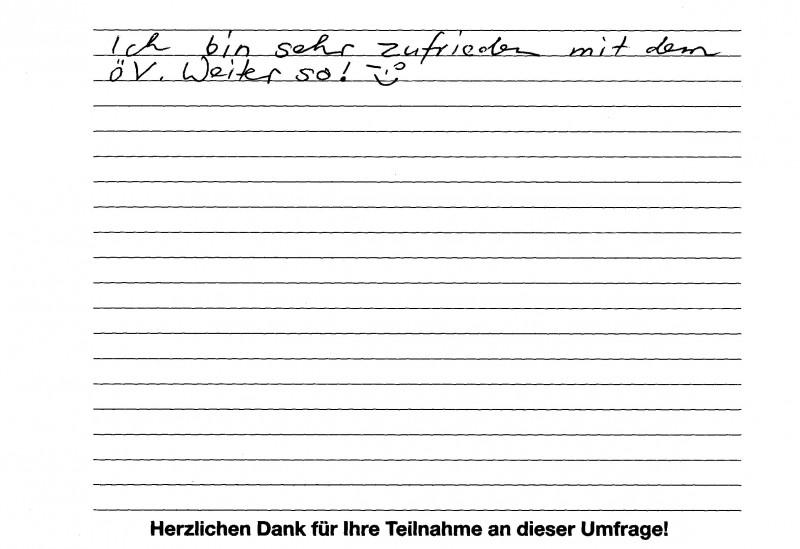 Ich bin sehr zufrieden mit dem
öV. Weiter so!
Herzlichen Dank für Ihre Teilnahme an dieser Umfrage!